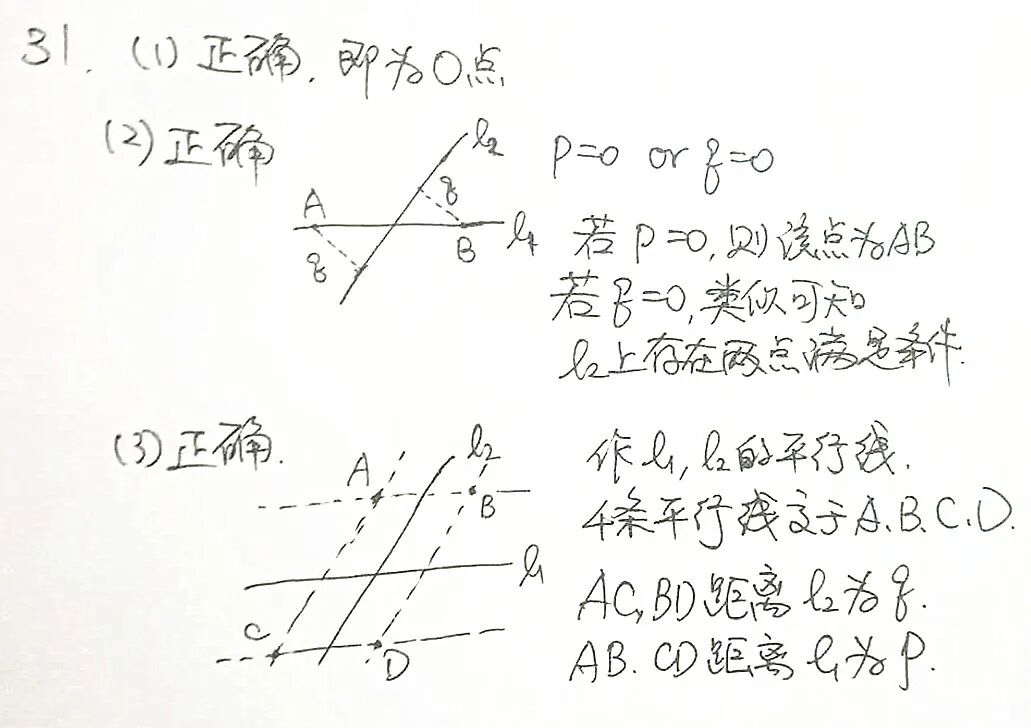 31. (1) 正确. 即为O点
(2) 正确
l₂
p=0 or q=0
A
q
B
l₁
q
若 p=0, 则该点为AB
若 q=0, 类似可知
l₂上存在两点满足条件.
(3) 正确.
A
l₂
B
l₁
C
D
作l₁, l₂的平行线.
4条平行线交于A.B.C.D.
AC, BD 距离 l₂为q.
AB. CD 距离 l₁为p.